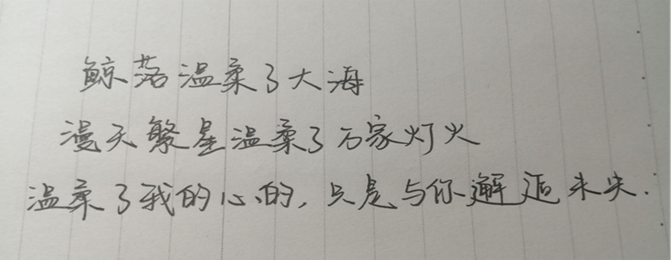 鲸落温柔了大海
漫天繁星温柔了万家灯火
温柔了我的心的，只是与你邂逅未央.